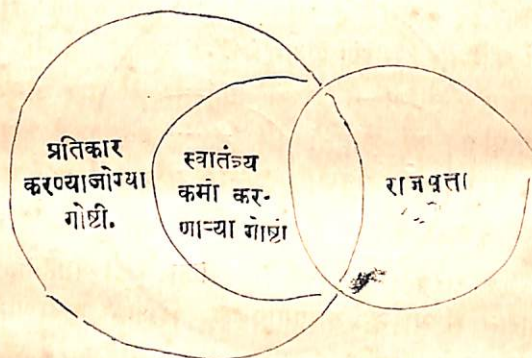 प्रतिकार
करण्याजोग्या
गोष्टी.
स्वातंत्र्य
कमी कर-
णाऱ्या गोष्टी
राजसत्ता